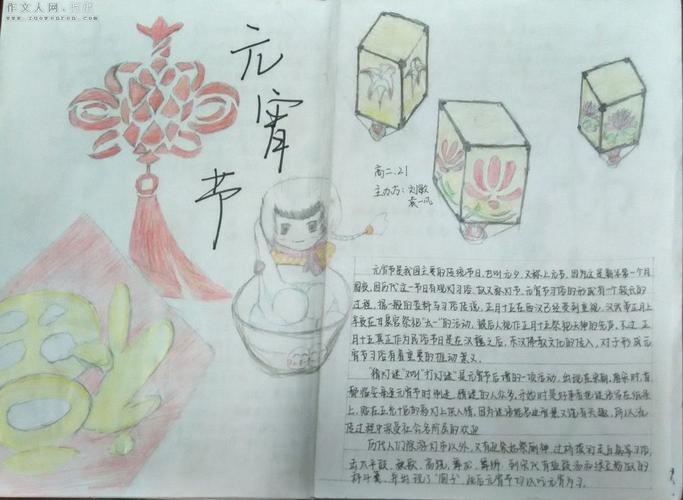 作文人网
www.zuowenren.com
元
宵
节
高二.21
主办方:刘敏
袁一凡
元宵节是我国主要的传统节日,也叫元夕,又称上元节,因为这是新年第一个月
圆夜,因历代这一节日有观灯习俗,故又称灯节。元宵节习俗的形成有一个较长的
过程,据一般的资料与习俗传说,正月十五在西汉已经受到重视,汉武帝正月上
辛夜在甘泉宫祭祀"太一"的活动,被后人视作正月十五祭祀天神的先声,不过,正
月十五真正作为民俗节日是在汉魏之后,东汉佛教文化的传入,对于形成元
宵节习俗有着重要的推动意义。
"猜灯谜"又叫"打灯谜"是元宵节后增的一项活动,出现在宋朝,南宋时,首
都临安每逢元宵节时制迷,猜谜的人众多,开始时是好事者把谜语写在纸条
上,贴在五光十色的彩灯上供人猜,因为谜语能启迪智慧又饶有兴趣,所以流
传过程中深受社会各阶层的欢迎
历代人们除游灯市以外,又有迎紫姑祭厕神,过桥摸钉走百病等习俗,
击太平鼓、秧歌、高跷、舞龙、舞狮